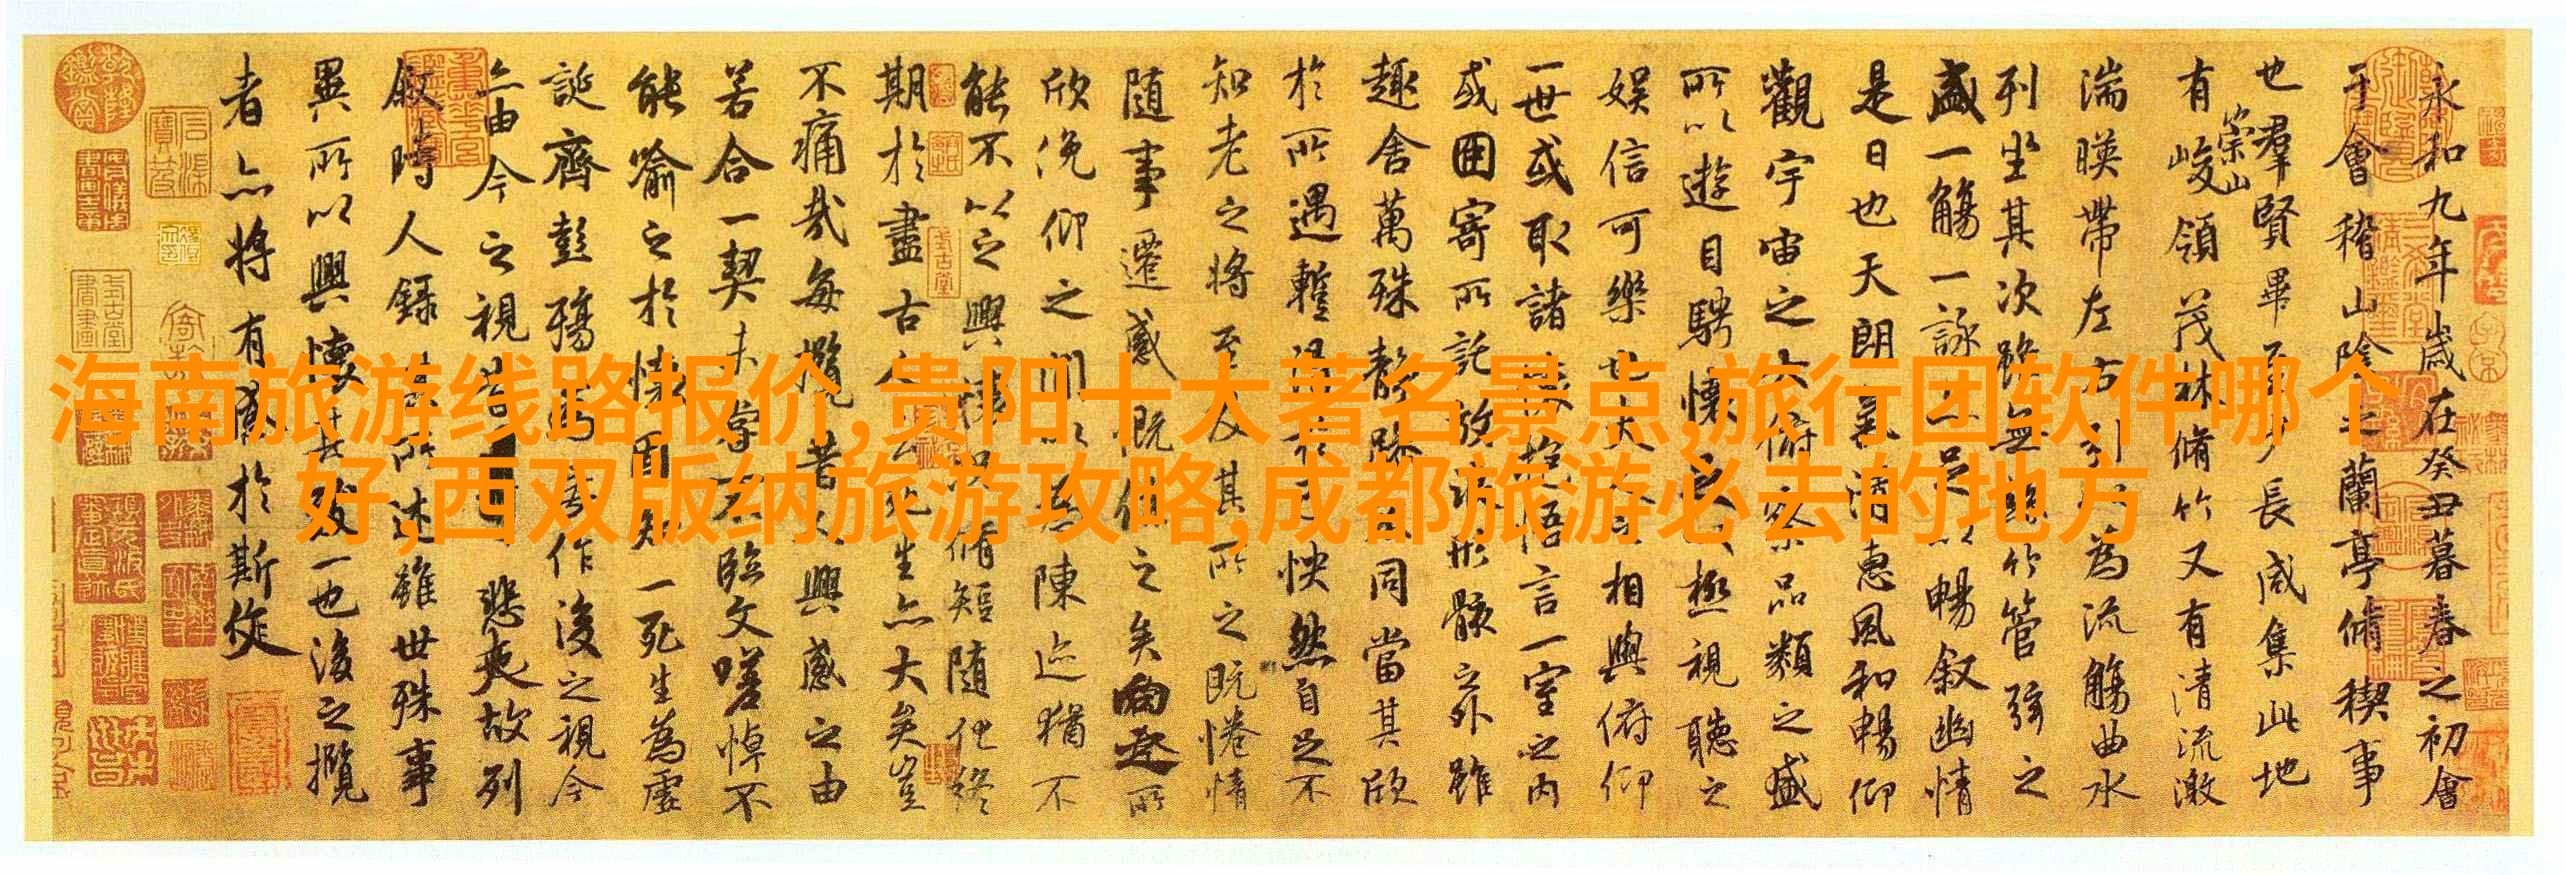 海南旅游线路报价,贵阳十大著名景点,旅行团软件哪个
好,西双版纳旅游攻略,成都旅游必去的地方
永和九年歲在癸丑暮春之初會
于會稽山陰之蘭亭脩稧事
也羣賢畢至少長咸集此地
有崇山峻領茂林脩竹又有清流激
湍暎帶左右引以為流觴曲水
列坐其次雖無絲竹管弦之
盛一觴一詠亦足以暢叙幽情
是日也天朗氣清惠風和暢仰
觀宇宙之大俯察品類之盛
所以遊目騁懷足以極視聽之
娛信可樂也夫人之相與俯仰
一世或取諸懷抱悟言一室之內
或因寄所託放浪形骸之外雖
趣舍萬殊靜躁不同當其欣
於所遇暫得於己怏然自足不
知老之將至及其所之既惓情
隨事遷感慨係之矣向之所
欣俛仰之閒以為陳迹猶不
能不以之興懷況脩短隨化終
期於盡古人云死生亦大矣豈
不痛哉每攬昔人興感之由
若合一契未嘗不臨文嗟悼不
能喻之於懷固知一死生為虛
誕齊彭殤為妄作後之視今
亦由今之視昔悲夫故列
敘時人錄其所述雖世殊事
異所以興懷其致一也後之攬
者亦將有感於斯文